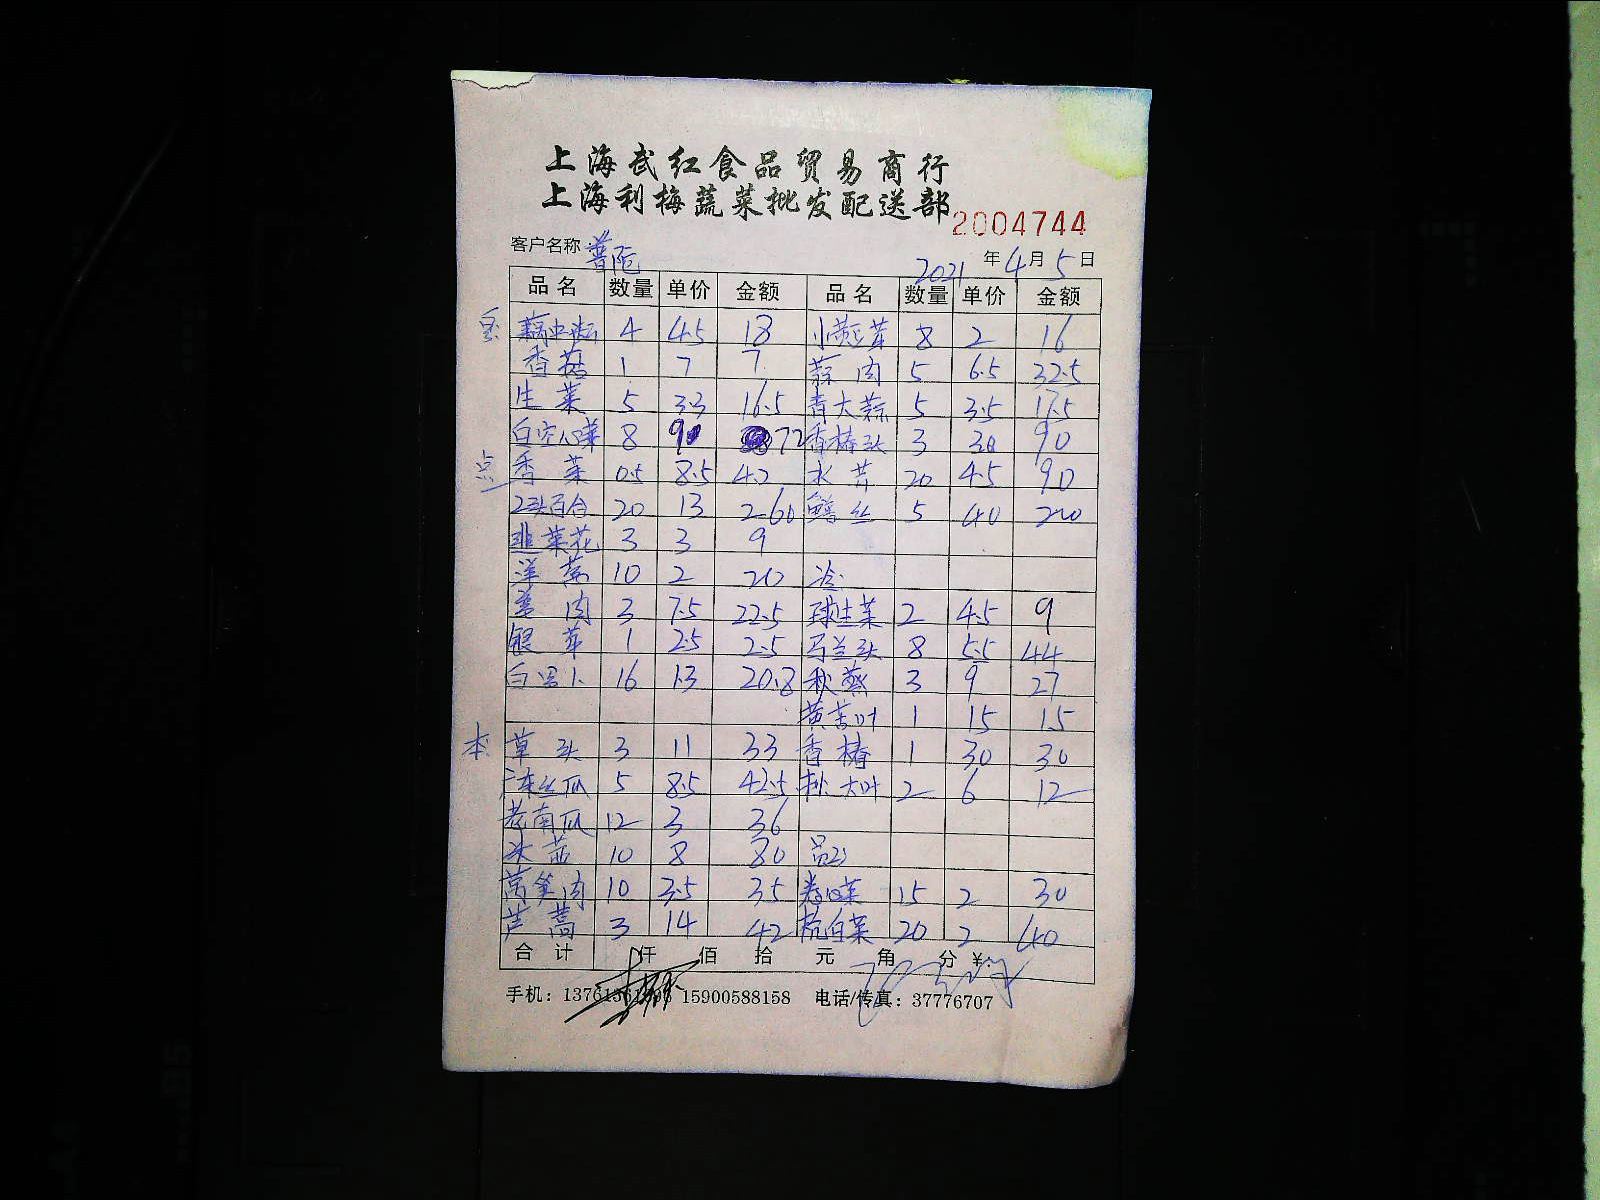 上海武红食品贸易商行
上海利梅蔬菜批发配送部
2004744
客户名称 普陀 2021 年 4 月 5 日
品名 数量 单价 金额 品名 数量 单价 金额
4 4.5 18 8 2 16
香菇 1 7 7 蒜肉 5 6.5 32.5
生菜 5 3.3 16.5 青大蒜 5 3.5 17.5
白空心菜 8 9 72 香椿头 3 30 90
点 香菜 0.5 8.5 4.2 水芹 20 4.5 90
2头百合 20 13 260 鳝丝 5 40 200
韭菜花 3 3 9
洋葱 10 2 20 冷
姜肉 3 7.5 22.5 球生菜 2 4.5 9
银芽 1 2.5 2.5 马兰头 8 5.5 44
白萝卜 16 1.3 20.8 秋葵 3 9 27
黄苦叶 1 15 15
本 草头 3 11 33 香椿 1 30 30
丝瓜 5 8.5 42.5 大叶 2 6 12
老南瓜 12 3 36
10 8 80
莴笋肉 10 3.5 35 卷心菜 15 2 30
芦蒿 3 14 42 杭白菜 20 2 40
合计 仟 佰 拾 元 角 分 ¥:
手机: 15900588158 电话/传真: 37776707